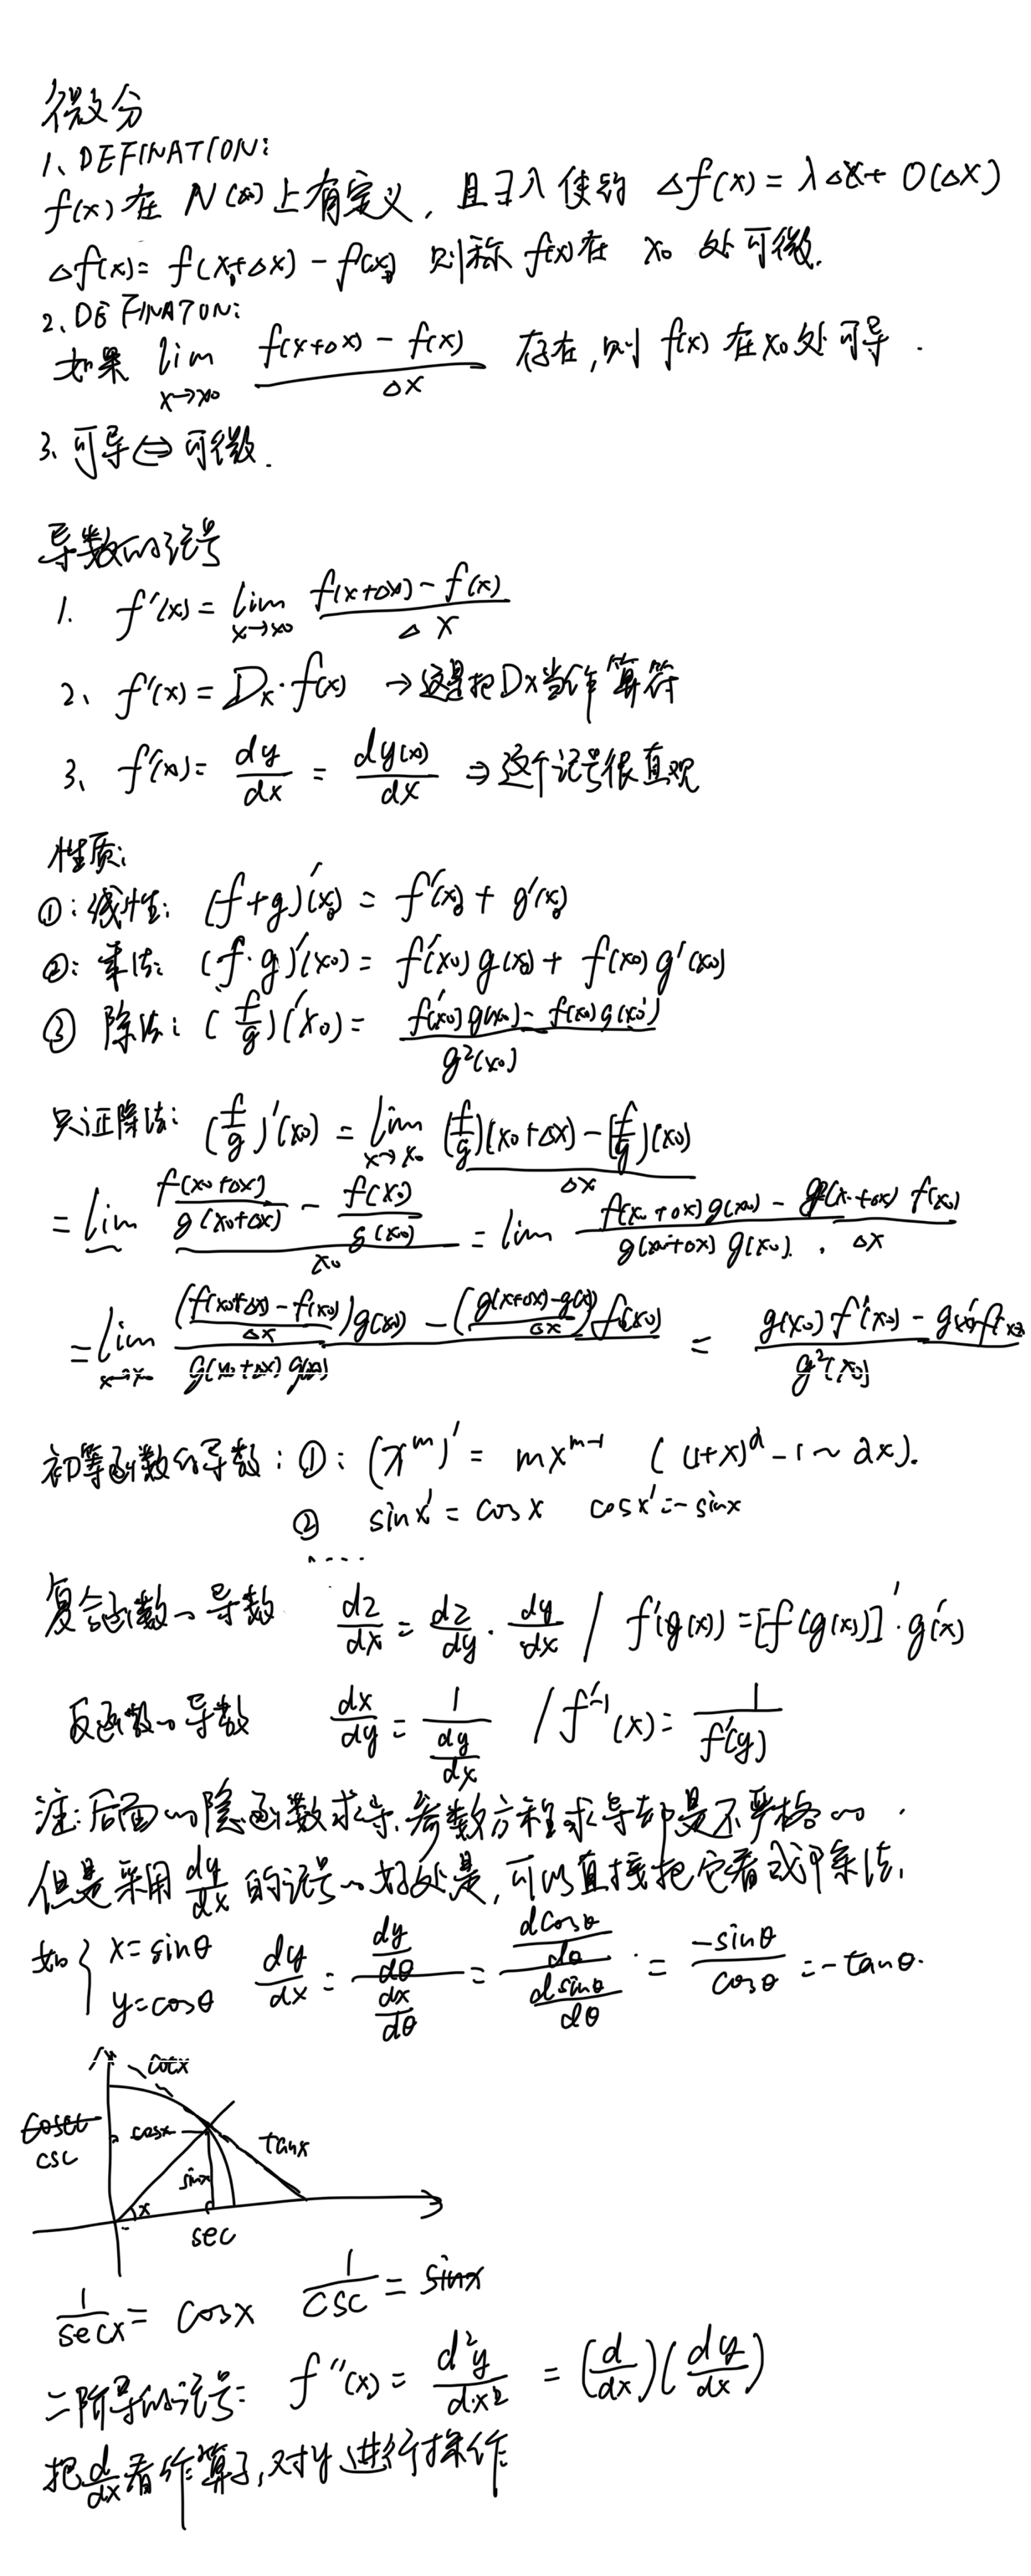 微分
1、DEFINATION:
f(x)在 N(x₀)上有定义, 且∃λ使的 △f(x)=λ△x+O(△X)
△f(x)= f(x₀+△x)-f(x₀) 则称 f(x)在 x₀ 处可微.
2、DEFINATON:
如果 lim_{x→x₀} (f(x+△x)-f(x))/△x 存在,则 f(x) 在x₀处可导.
3、可导⇔可微.
导数的记号
1. f'(x)= lim_{x→x₀} (f(x+△x)-f(x))/△x
2、f'(x)=Dx·f(x) →这是把Dx当作算符
3、f'(x)= dy/dx = dy(x)/dx ⇒这个记号很直观
性质:
①:线性: (f+g)'(x₀) = f'(x₀)+g'(x₀)
②: 乘法: (f·g)'(x₀)= f'(x₀)g(x₀)+ f(x₀)g'(x₀)
③ 除法: (f/g)'(x₀)= (f'(x₀)g(x₀)-f(x₀)g'(x₀))/g²(x₀)
只证除法: (f/g)'(x₀) = lim_{x→x₀} ((f/g)(x₀+△x)-(f/g)(x₀))/△x
=lim (f(x₀+△x)/g(x₀+△x) - f(x₀)/g(x₀))/x₀ = lim (f(x₀+△x)g(x₀)-g(x₀+△x)f(x₀))/(g(x₀+△x)g(x₀).△x)
=lim_{x→x₀} (((f(x₀+△x)-f(x₀))/△x)g(x₀)-((g(x+△x)-g(x))/△x)f(x₀))/(g(x₀+△x)g(x₀)) = (g(x₀)f'(x₀)-g'(x₀)f(x₀))/g²(x₀)
初等函数的导数: ①: (x^m)' = mx^{m-1} ((1+x)^α-1~αx).
② sinx' = cosx cosx'=-sinx
....
复合函数的导数 dz/dx = dz/dy · dy/dx / f'(g(x))=[f(g(x))]'·g'(x)
反函数的导数 dx/dy = 1/(dy/dx) / f'^{-1}(x)= 1/f'(y)
注:后面的隐函数求导、参数方程求导都是不严格的.
但是采用 dy/dx 的记号的好处是,可以直接把它看成乘法,
如{x=sinθ y=cosθ dy/dx = (dy/dθ)/(dx/dθ) = (dcosθ/dθ)/(dsinθ/dθ) = -sinθ/cosθ =-tanθ.
cotx
csc
cosx
tanx
sinx
x
sec
1/secx = cosx 1/csc = sinx
二阶导的记号: f''(x)= d²y/dx² = (d/dx)(dy/dx)
把d/dx看作算子,对y进行操作